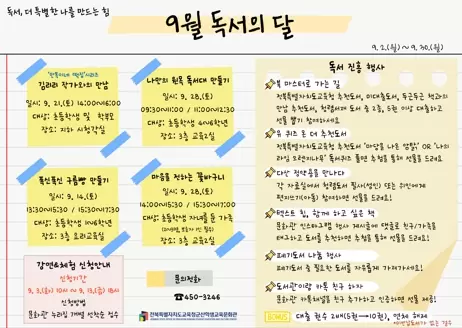 독서, 더 특별한 나를 만드는 힘
9월 독서의 달
9. 2.(월) ~ 9. 30.(월)
'한밤중에 떡집'시리즈
김리리 작가와의 만남
일시: 9. 21.(토) 14:00~16:00
대상: 초등학생 및 학부모
장소: 지하 시청각실
나만의 원목 독서대 만들기
일시: 9. 28.(토)
09:30~11:00 / 11:00~12:30
대상: 초등학생 1~6학년
장소: 3층 교육2실
폭신폭신 구름빵 만들기
일시: 9. 14.(토)
13:30~15:30 / 15:30~17:30
대상: 초등학생 1~6학년
장소: 3층 요리교육실
마음을 전하는 꽃바구니
일시: 9. 28.(토)
14:00~15:30 / 15:30~17:00
대상: 초등학생 자녀를 둔 가족
장소: 3층 교육2실
강연&체험 신청안내
신청기간
신청방법
문화관 누리집 개별 선착순 접수
문의전화
☎450-3246
전북특별자치도교육청군산학생교육문화관
독서 진흥 행사
북 마스터로 가는 길
전북특별자치도교육청 추천도서, 미대출도서, 두근두근 책과의
만남 추천도서, 청렴해서 도서 중 2종, 5권 이상 대출하고
선물 받기 참여하세요
유 퀴즈 온 더 추천도서
전북특별자치도교육청 추천도서 '마당을 나온 암탉' OR '나의
독서퀴즈 풀면 추첨을 통해 선물을 드려요
다산 정약용을 만나다
각 자료실에서 청렴도서 필사(성인) 또는 위인에게
편지쓰기(아동) 참여하면 선물을 드려요
텍스트 힙, 함께 하고 싶은 책
문화관 인스타그램 행사 게시글에 댓글로 친구/가족을
태그하고 도서를 추천하면 추첨을 통해 선물을 드려요!
폐기도서 나눔 행사
폐기도서 중 필요한 도서를 자유롭게 가져가세요!
도서관이랑 카톡 친구 하자
문화관 카톡채널을 친구 추가하고 인증하면 선물 제공!
BONUS
대출 권수 2배(5→10권), 연체 해제